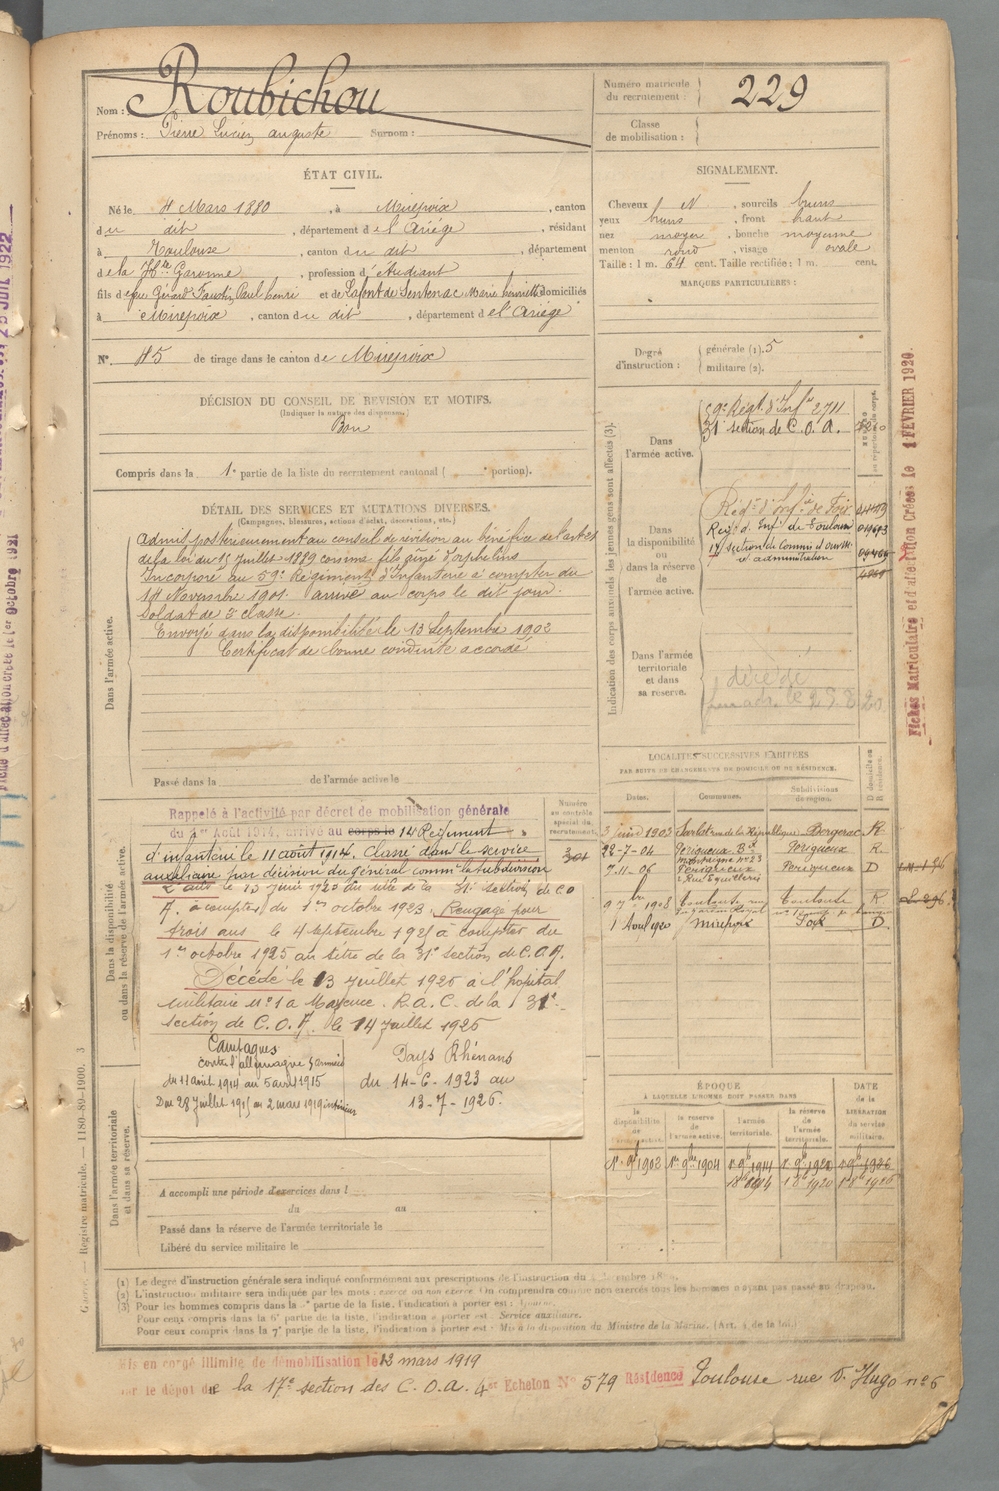 Nom : Roubichou
Prénoms : Pierre Lucien auguste Surnom :
Numéro matricule
du recrutement : 229
Classe
de mobilisation :
ÉTAT CIVIL.
Né le 4 Mars 1880, à Mirepoix, canton
du dit, département de l'Ariége, résidant
à Toulouse, canton du dit, département
de la Hte Garonne, profession d'Etudiant
fils de feu Gérard Faustin Paul henri et de Lafont de Sentenac Marie henriette domiciliés
à Mirepoix, canton du dit, département de l'Ariége
No. 45 de tirage dans le canton de Mirepoix
SIGNALEMENT.
Cheveux N, sourcils bruns
yeux bruns, front haut
nez moyen, bouche moyenne
menton rond, visage ovale
Taille : 1 m. 64 cent. Taille rectifiée : 1 m. cent.
MARQUES PARTICULIÈRES :
Degré
d'instruction :
générale (1). 5
militaire (2).
DÉCISION DU CONSEIL DE REVISION ET MOTIFS.
(Indiquer la nature des dispenses.)
Bon
Compris dans la 1e partie de la liste du recrutement cantonal ( e portion).
DÉTAIL DES SERVICES ET MUTATIONS DIVERSES.
(Campagnes, blessures, actions d'éclat, décorations, etc.)
Dans l'armée active.
admis postérieurement au conseil de révision au bénéfice de l'art
de la loi du 15 Juillet 1889 comme fils ainé d'orphelins
Incorporé au 59e Régiment d'Infanterie à compter du
14 Novembre 1901. arrivé au corps le dit jour.
Soldat de 2e classe.
Envoyé dans la disponibilité le 13 Septembre 1902
Certificat de bonne conduite accordé
Passé dans la de l'armée active le
Indication des corps auxquels les jeunes gens sont affectés (3).
Dans
l'armée active.
59e Régt d'Infie 2711
31e section de C.O.A.
NUMÉRO
au répertoire du corps.
Dans
la disponibilité
ou
dans la réserve
de
l'armée active.
Regt d'Infie de Foix
Regt d'Infie de Toulouse
17e section de Commis et ouvriers
d'administration
Dans l'armée
territoriale
et dans
sa réserve.
décédé
Fiches Matriculaire et d'affectation Créées le 1 FEVRIER 1920.
Dans la disponibilité
ou dans la réserve de l'armée active.
Rappelé à l'activité par décret de mobilisation générale
du 1er Août 1914, arrivé au corps le 14 Régiment
d'infanterie le 11 août 1914. Classé dans le service
auxiliaire par décision du général commt la subdivision
2 ans le 13 juin 1923 au titre de la 31e section de CO
A. à compter du 1er octobre 1923. Rengagé pour
trois ans le 4 septembre 1925 à compter du
1er octobre 1925 au titre de la 31e section de C.O.A.
Décédé le 13 juillet 1926 à l'hopital
militaire no 1 à Mayence. R.a.C. de la 31e
section de C.O.A. le 14 juillet 1926
Campagnes
contre l'allemagne
du 11 août 1914 au 5 avril 1915
Du 28 juillet 1915 au 2 mars 1919 intérieur
Pays Rhénans
du 14-6-1923 au
13-7-1926.
Numéro
au contrôle
spécial du
recrutement.
LOCALITÉS SUCCESSIVES HABITÉES
PAR SUITE DE CHANGEMENTS DE DOMICILE OU DE RÉSIDENCE.
Dates. Communes. Subdivisions de région. D domicile ou R résidence.
3 juin 1903 Sarlat rue de la République Bergerac R
22-7-04 Perigueux Bd Montaigne no 23 Perigueux R
7-11-06 Perigueux 2 Rue Eguillerie Perigueux D
9 7bre 1908 Toulouse Toulouse R
1 Aout 1920 Mirepoix Foix D
ÉPOQUE
À LAQUELLE L'HOMME DOIT PASSER DANS
la disponibilité
la réserve de l'armée active.
l'armée territoriale.
la réserve de l'armée territoriale.
DATE
de la
LIBÉRATION
du service
militaire.
1er 9bre 1902 1er 9bre 1904 1er 9bre 1914 1er 9bre 1920 1er 9bre 1926
Dans l'armée territoriale
et dans sa réserve.
A accompli une période d'exercices dans l
du au
Passé dans la réserve de l'armée territoriale le
Libéré du service militaire le
Registre matricule. — 1186-89-1900. 3
(1) Le degré d'instruction générale sera indiqué conformément aux prescriptions de l'instruction du
(2) L'instruction militaire sera indiquée par les mots : exercé ou non exercé. On comprendra comme non exercés tous les hommes n'ayant pas passé au drapeau.
(3) Pour les hommes compris dans la e partie de la liste, l'indication à porter est : Ajourné.
Pour ceux compris dans la 6e partie de la liste, l'indication à porter est : Service auxiliaire.
Pour ceux compris dans la 7e partie de la liste, l'indication à porter est : Mis à la disposition du Ministre de la Marine. (Art. 4 de la loi.)
Mis en congé illimité de démobilisation le 12 mars 1919
par le dépôt de la 17e section des C.O.A. 4e Echelon No 579 Résidence Toulouse rue V. Hugo no 6